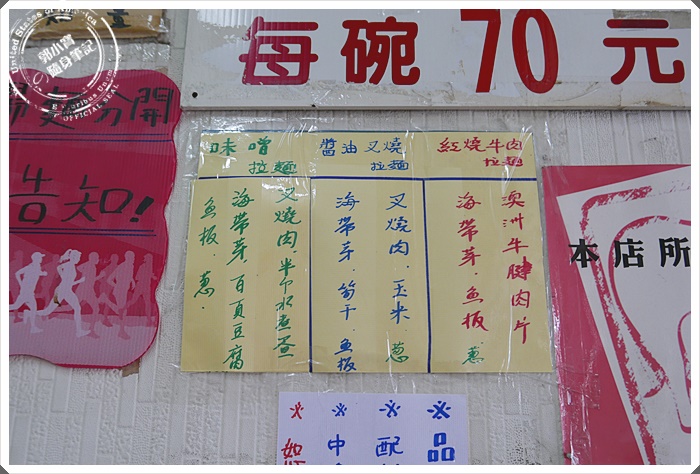 郭小寶
隨身筆記
United States of America
E Pluribus Unum
OFFICIAL SEAL
每碗 70 元
分開
告知!
味噌
拉麵
叉燒肉.半个水煮蛋
海帶芽.百頁豆腐
魚板.蔥.
醬油叉燒
拉麵
叉燒肉.玉米.蔥
海帶芽.筍干.魚板
紅燒牛肉
拉麵
澳洲牛腱肉片
海帶芽.魚板.蔥
本店所
※品
※配
※中
※如